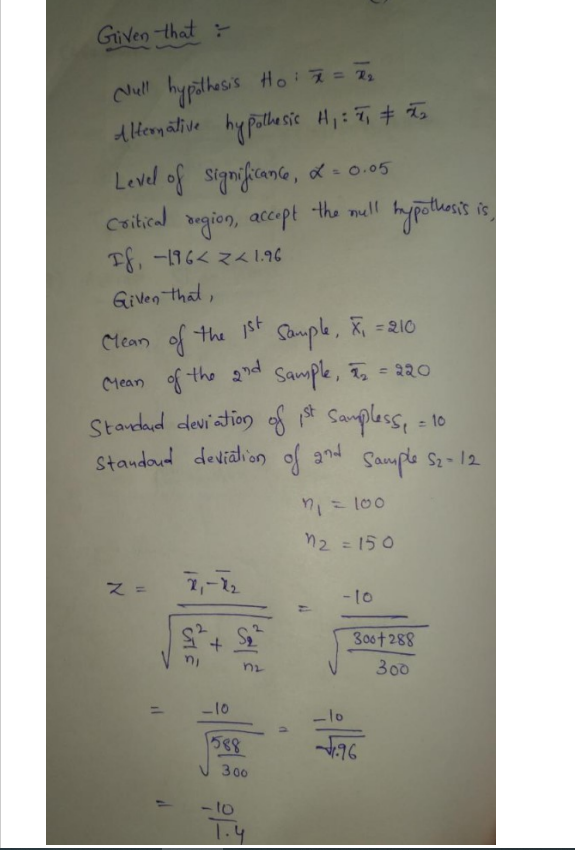 Given that :-
Null hypothesis H₀ : x̄ = x̄₂
Alternative hypothesis H₁ : x̄₁ ≠ x̄₂
Level of significance, α = 0.05
Critical region, accept the null hypothesis is,
If, -196 < z < 1.96
Given that,
Mean of the 1st Sample, x̄₁ = 210
Mean of the 2nd Sample, x̄₂ = 220
Standard deviation of 1st Sample S₁ = 10
Standard deviation of 2nd Sample S₂ = 12
n₁ = 100
n₂ = 150
z = (x̄₁ - x̄₂) / √(S₁²/n₁ + S₂²/n₂) = -10 / √((300+288)/300)
= -10 / √(588/300) = -10 / √1.96
= -10 / 1.4